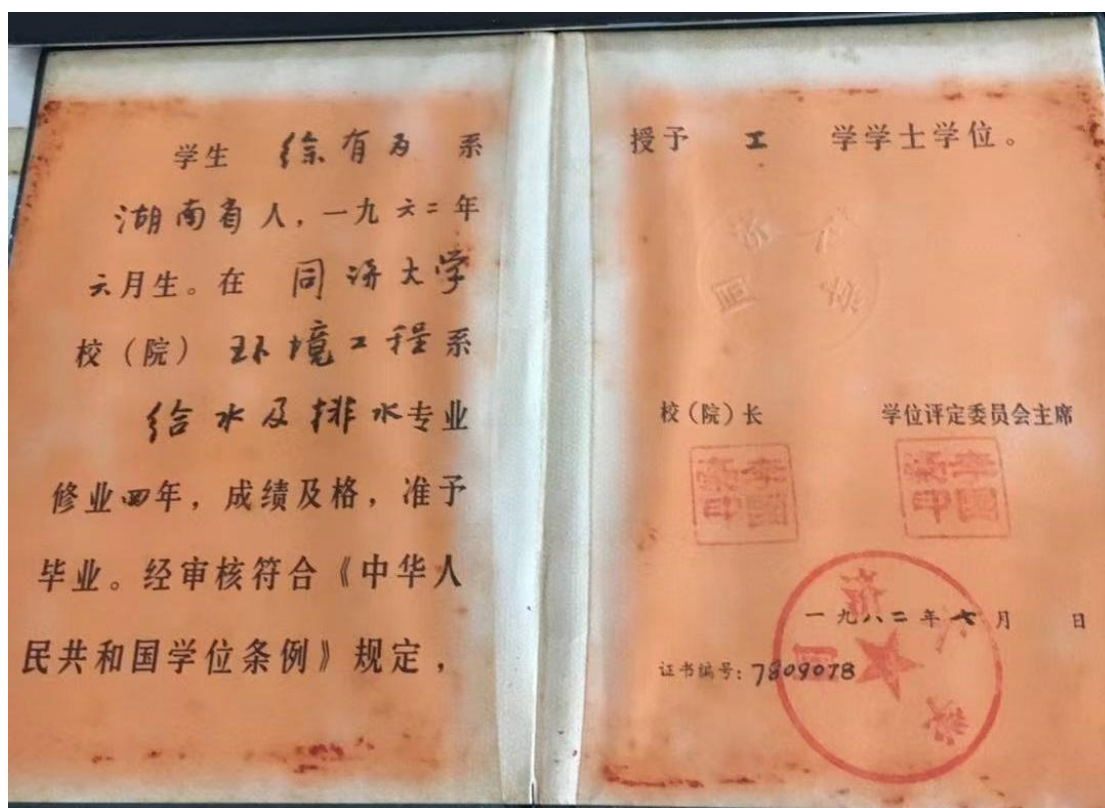 学生 徐有为 系
湖南省人，一九六二年
六月生。在 同济大学
校（院） 环境工程系
给水及排水专业
修业四年，成绩及格，准予
毕业。经审核符合《中华人
民共和国学位条例》规定，
授予 工 学学士学位。
校（院）长
学位评定委员会主席
李国豪印
李国豪印
一九八二年七月 日
证书编号：7809078
同济大学